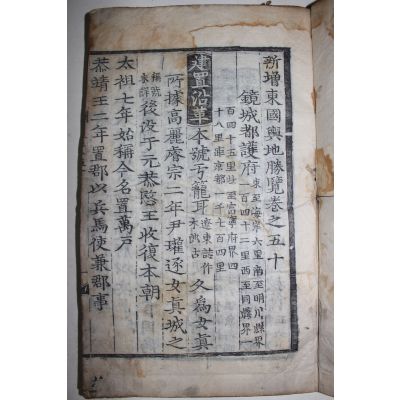 新增東國輿地勝覽卷之五十
鏡城都護府東至海岸六里南至明川縣界
一百四十二里西至同縣界一
百四十五里北至富寧府界四
十八里距京都一千七百四里
建置沿革本號亏籠耳 久爲女眞
所據高麗睿宗二年尹瓘逐女眞城之
後沒于元恭愍王收復本朝
太祖七年始稱今名置萬戶
恭靖王二年置郡以兵馬使兼郡事